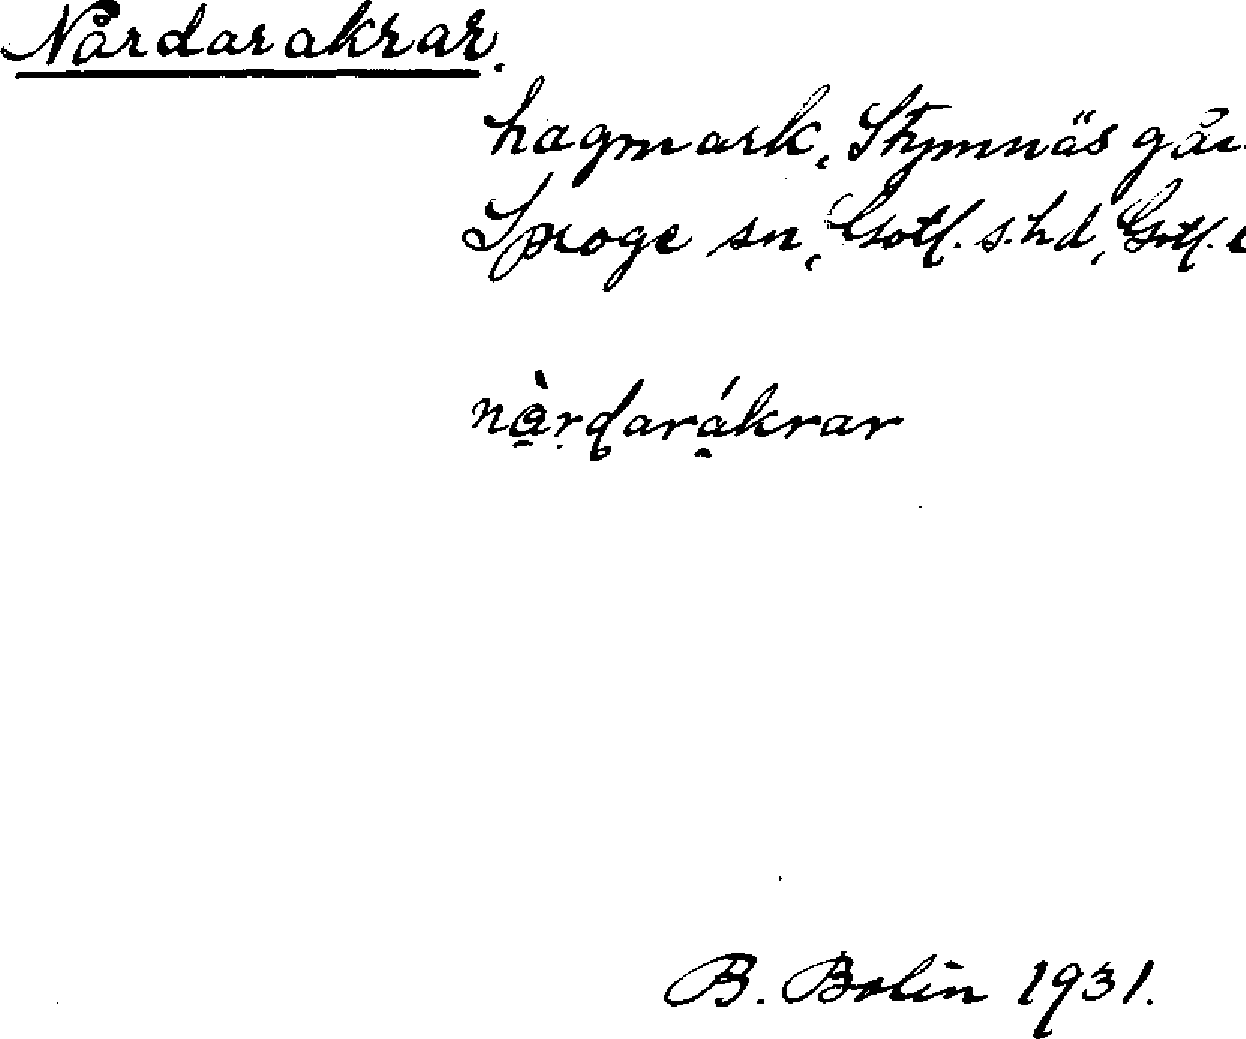 Nårdarakrar.
hagmark, Stymnäs går
Sproge sn, Gotl. s. hd, Gotl.
nàrdarákrar
B. Bolin 1931.